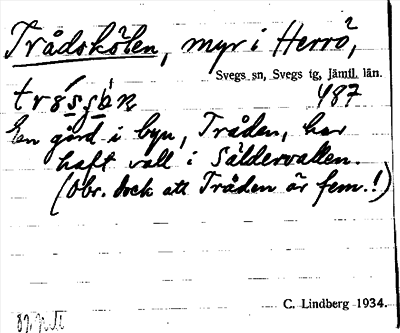 Trådskölen, myr i Herrö,
Svegs sn, Svegs tg, Jämtl. län.
487
En gård i byn, Tråden, har
haft vall i Säldervallen.
(Obs. dock att Tråden är fem.!)
C. Lindberg 1934.